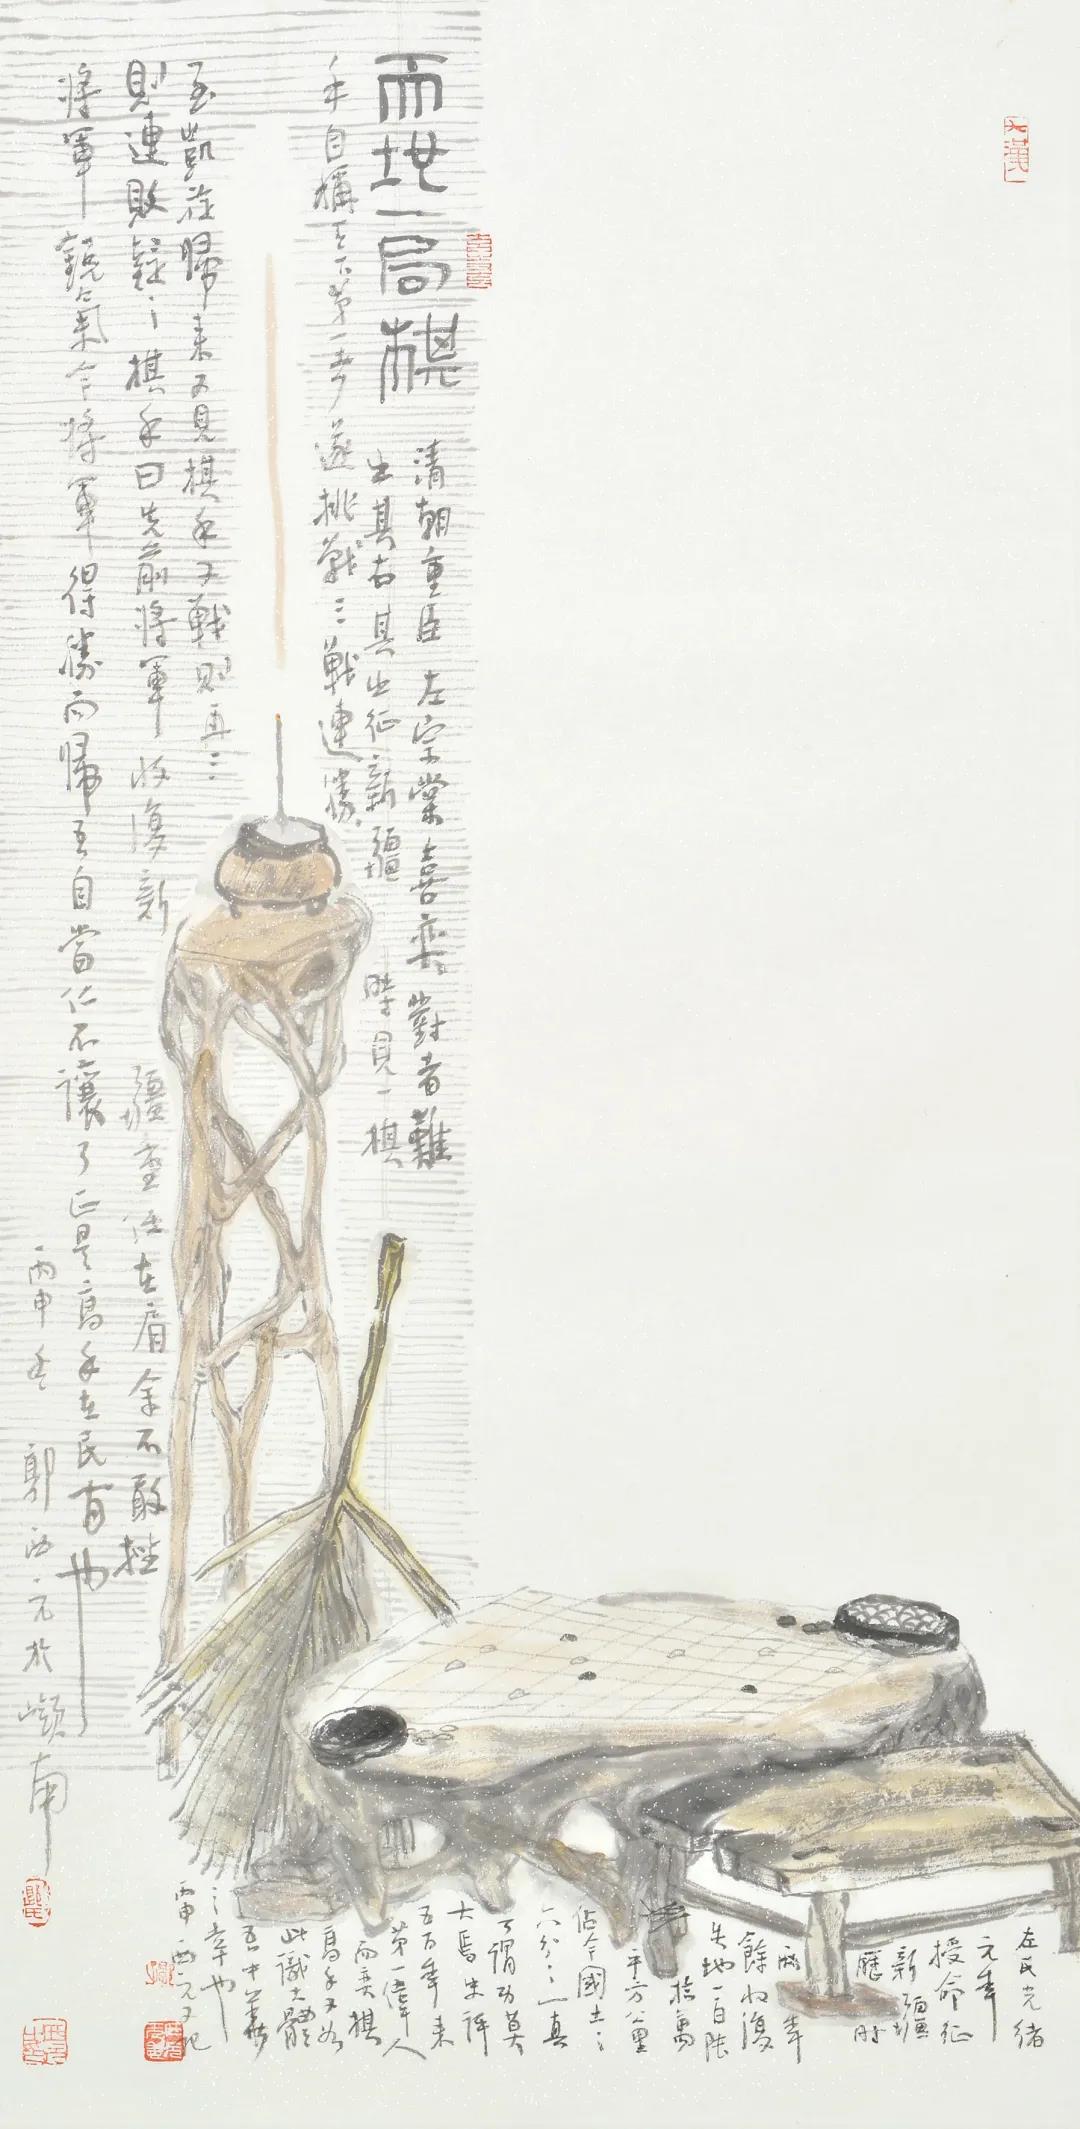 大漢
天地一局棋
清朝重臣左宗棠喜弈對者難
出其右其出征新疆時見一棋
手自稱天下第一遂挑戰三戰連勝
至凱旋歸來又見棋手又戰則再三
則連敗疑之棋手曰先前將軍收復新疆重任在肩余不敢挫
將軍銳氣今將軍得勝而歸吾自當仁不讓了正是高手在民間也
丙申冬郭西元於嶺南
左氏光緒
元年
授命征
新疆
歷時
兩年
餘收復
失地一百陸
拾萬
平方公里
佔今國土之
六分之一真
可謂功莫
大焉史評
五百年來
第一偉人
而奕棋
高手又如
此識大體
吾中華
之幸也
丙申西元又記